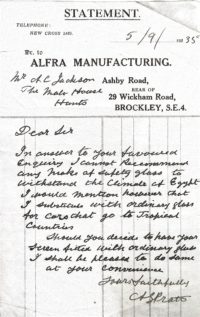 STATEMENT.
TELEPHONE:
NEW CROSS
5/9/1935
Dr. to
ALFRA MANUFACTURING.
Mr A C Jackson
Ashby Road,
The
House
REAR OF
29 Wickham Road,
Hants
BROCKLEY, S.E.4.
Dear Sir
In answer to your favoured
Enquiry I cannot Recommend
any make of safety glass to
Withstand the Climate of Egypt
I would mention however that
I substitute with ordinary glass
for cars that go to Tropical
Countries
Should you decide to have your
Screen fitted with ordinary glass
I shall be pleased to do same
at your convenience
Yours faithfully